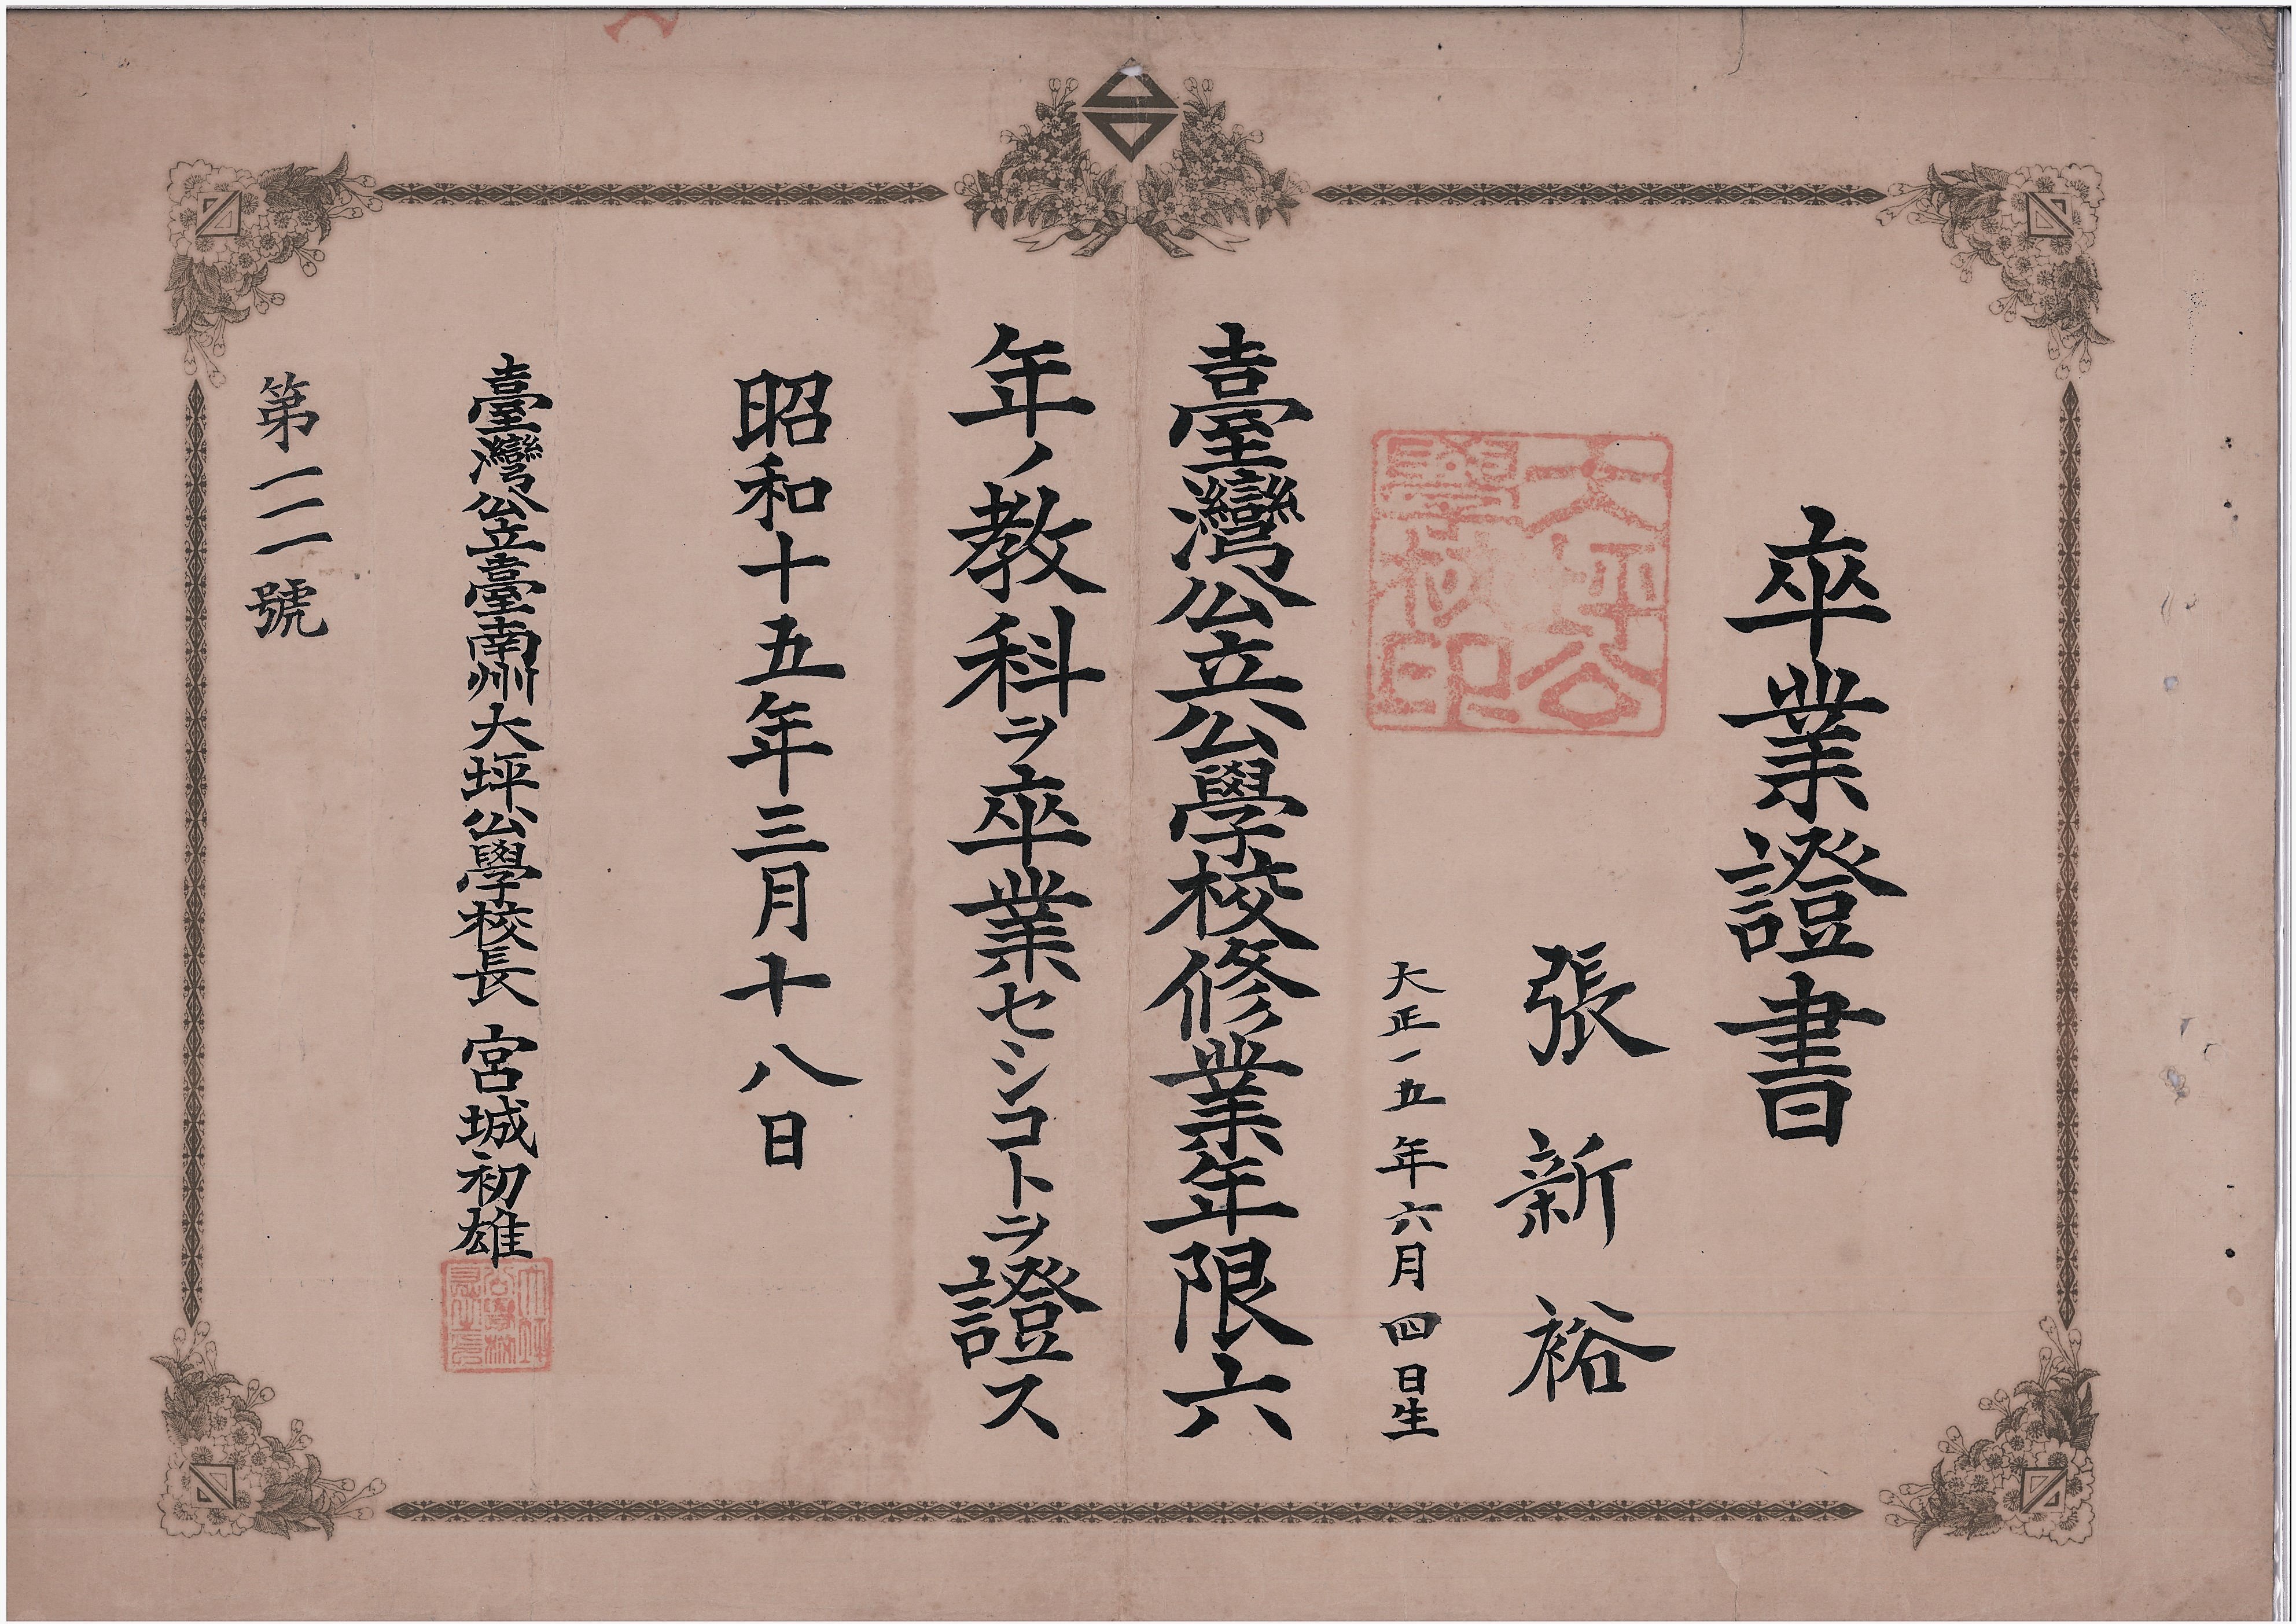 卒業證書
張新裕
大正一五年六月四日生
大坪公
學校印
臺灣公立公學校修業年限六
年ノ教科ヲ卒業セシコトヲ證ス
昭和十五年三月十八日
臺灣公立臺南州大坪公學校長 宮城初雄
第一二一號